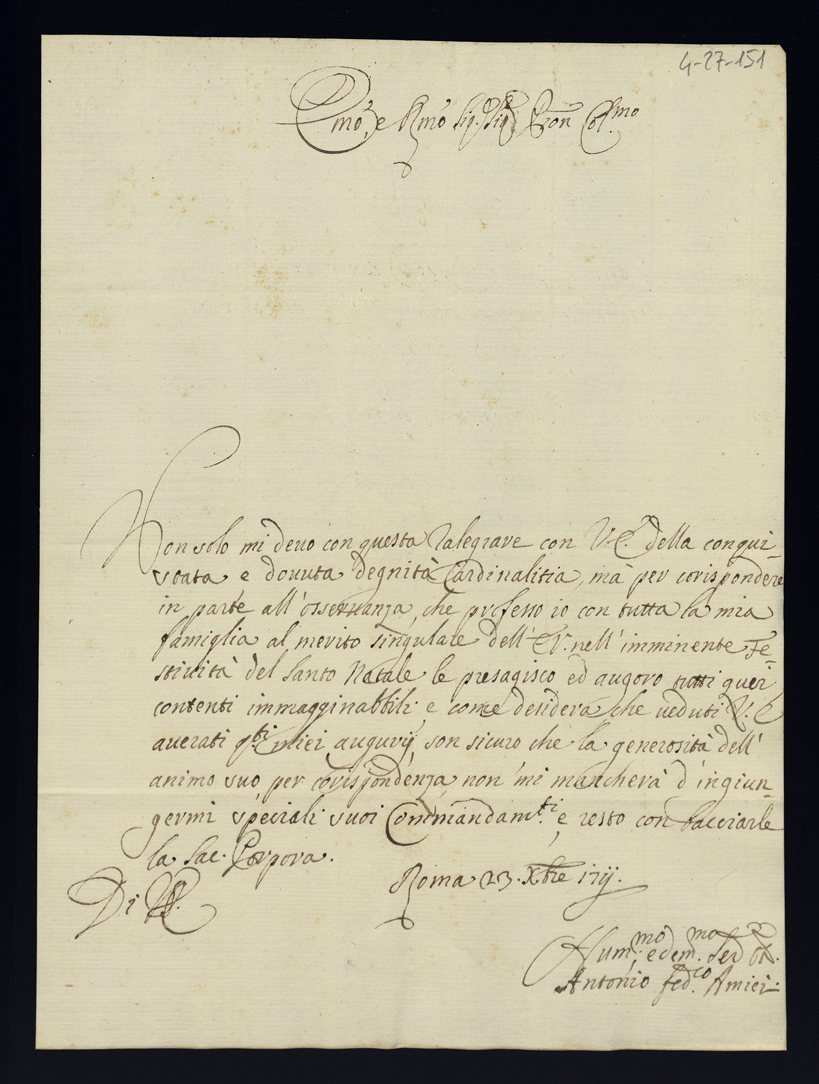 4-27-151
Em̃o, e Rm̃o Sig.r Sig.r Pron Col.mo
Non solo mi deuo con questa ralegrare con V.E. della conqui-
stata e douuta degnità Cardinalitia, mà per corispondere
in parte all'osseruanza, che professo io con tutta la mia
famiglia al merito singulare dell'E.V. nell'imminente Fe-
stiuità del Santo Natale le presagisco ed auguro tutti quei
contenti immagginabbili e come desidera che ueduti V.E.
auerati q.ti miei augurij, son sicuro che la generosità dell'
animo suo, per corispondenza non mi mancherà d'ingiun-
germi speciali suoi Commandam.ti e resto con bacciarle
la Sac. Porpora.
Di V.E. Roma 23. Xbre 171j.
Hum.mo e dem.mo Ser.
Antonio Fed.co Amici